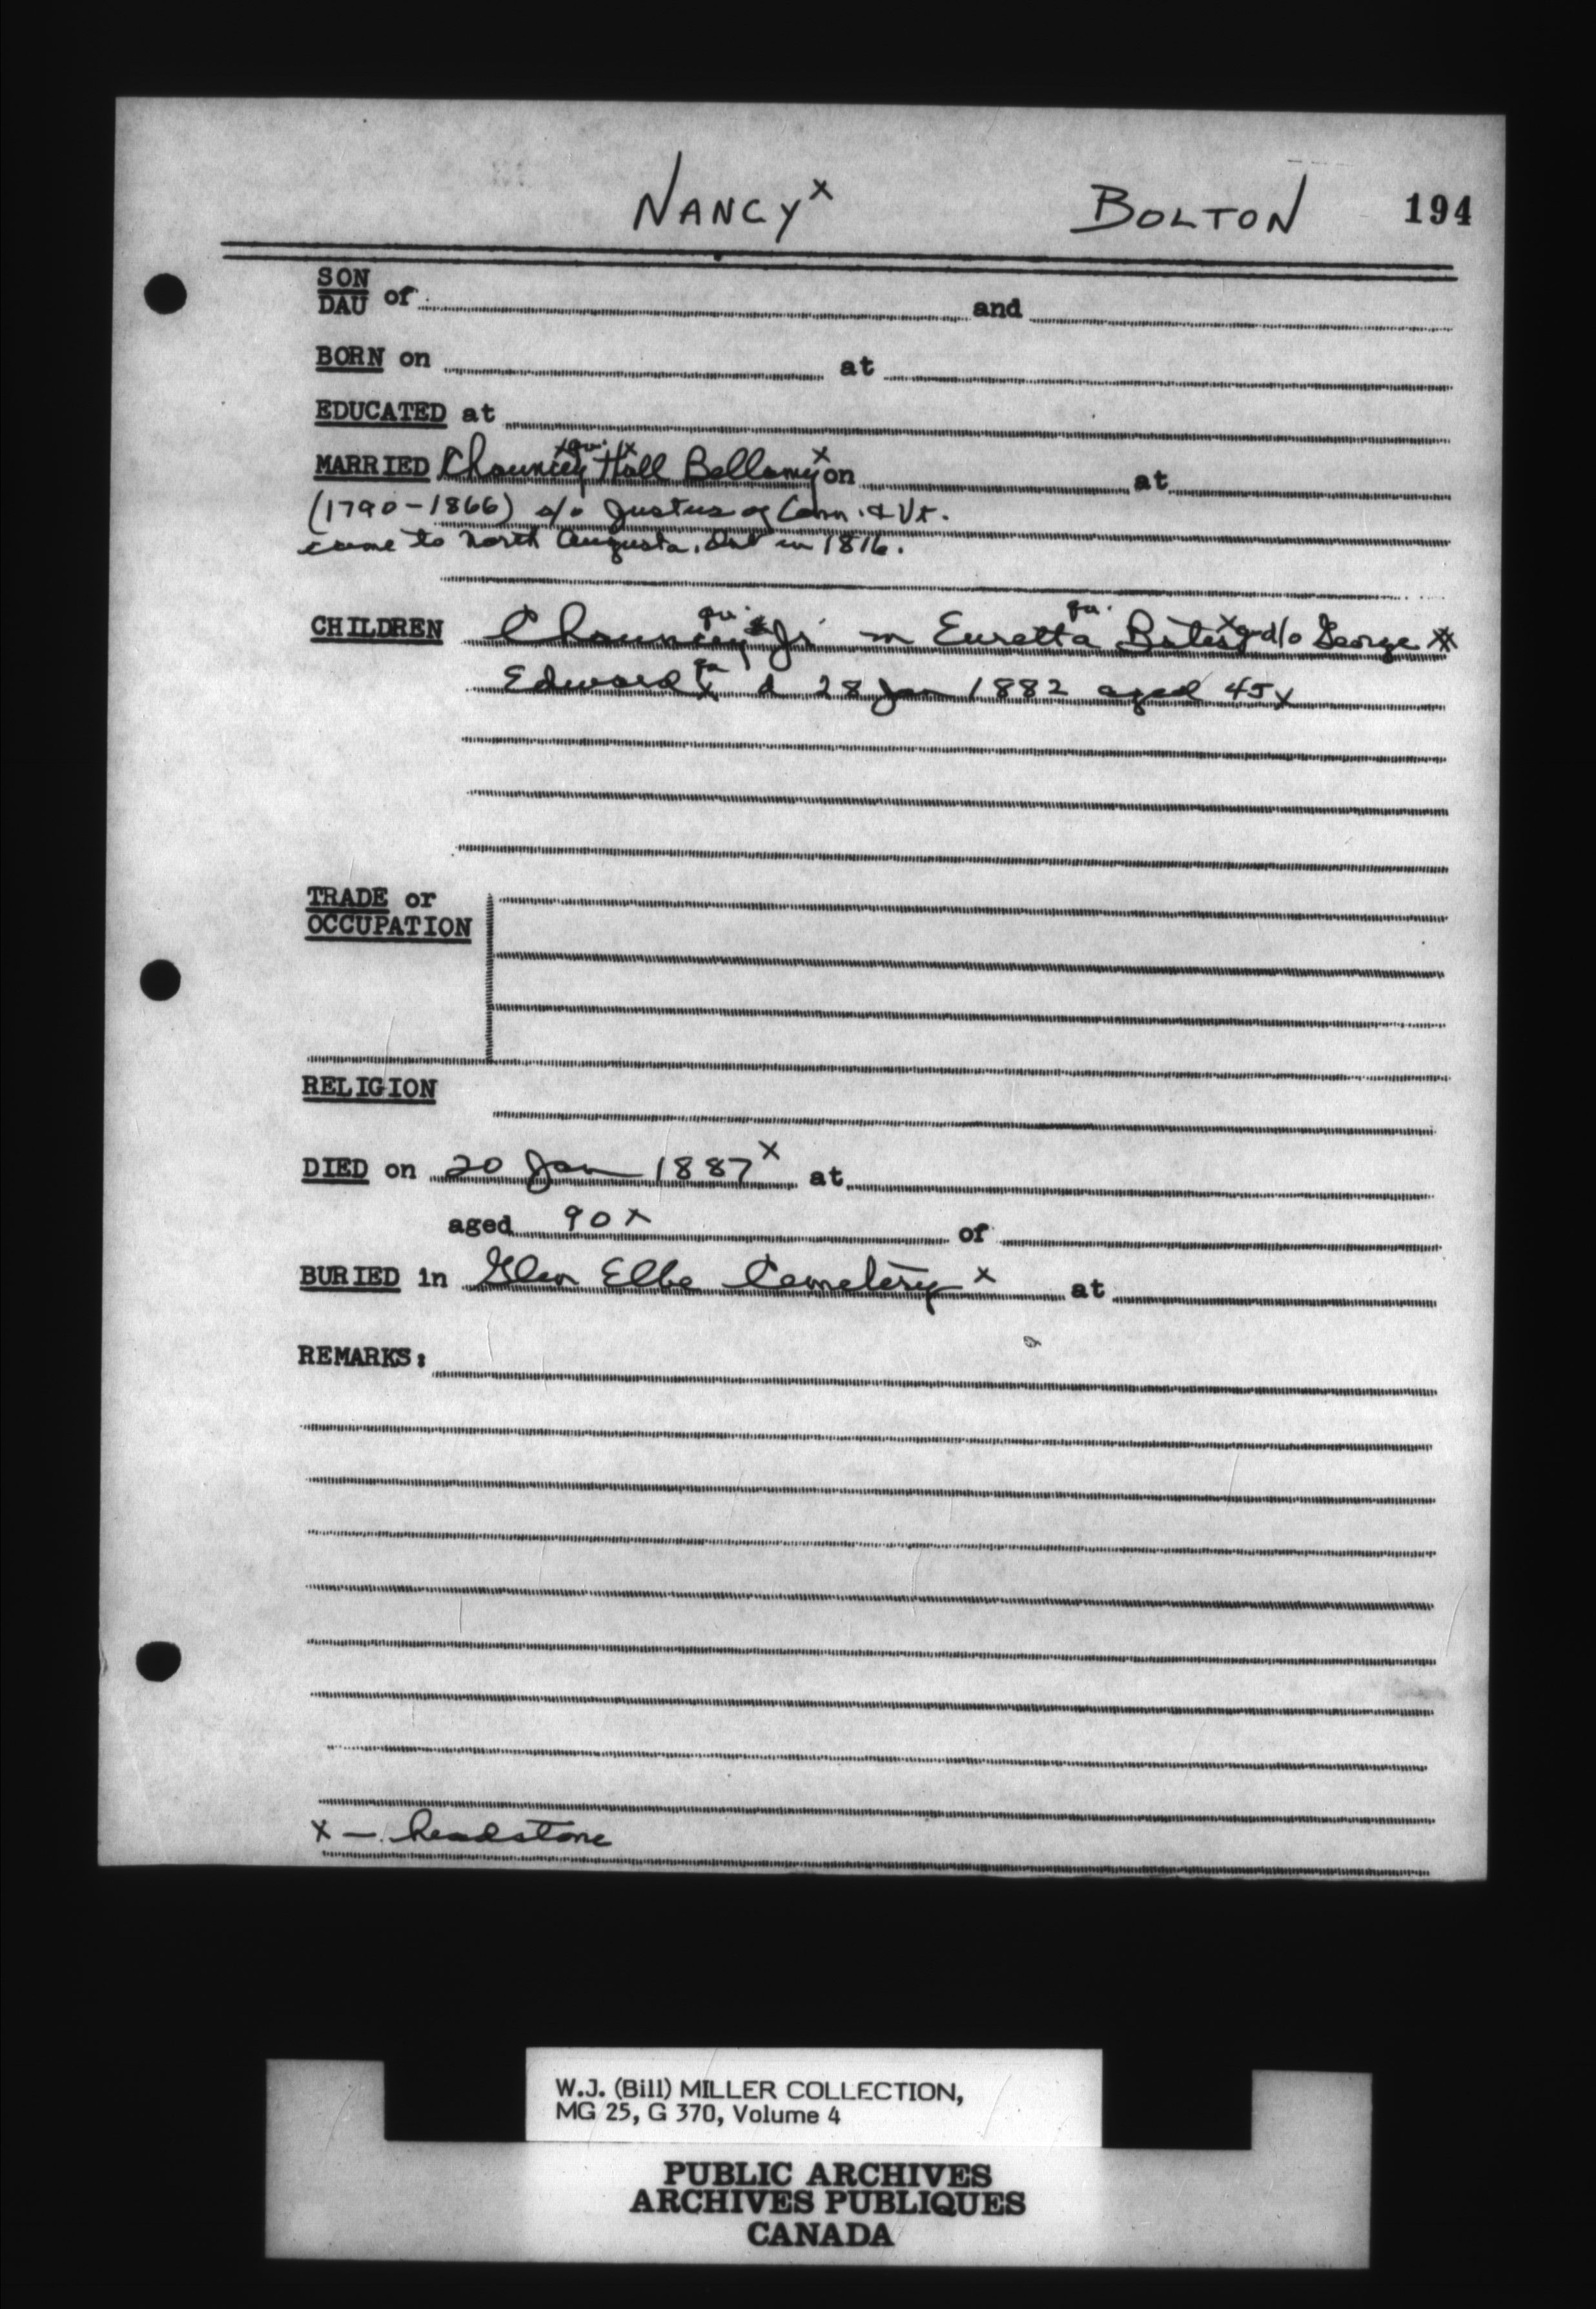 NANCY x BOLTON 194
SON
DAU of and
BORN on at
EDUCATED at
x qv. x x
MARRIED Chauncey Hall Bellamy on at
(1790-1866) s/o Justus of Conn. & Vt.
came to North Augusta, Ont in 1816.
qv. qv.
CHILDREN Chauncey x Jr m Euretta Bates x d/o George
Edward x d 28 Jan 1882 aged 45 x
TRADE or
OCCUPATION
RELIGION
DIED on 20 Jan 1887 x at
aged 90 x of
BURIED in Glen Elbe Cemetery x at
REMARKS:
x - headstone
W.J. (Bill) MILLER COLLECTION,
MG 25, G 370, Volume 4
PUBLIC ARCHIVES
ARCHIVES PUBLIQUES
CANADA